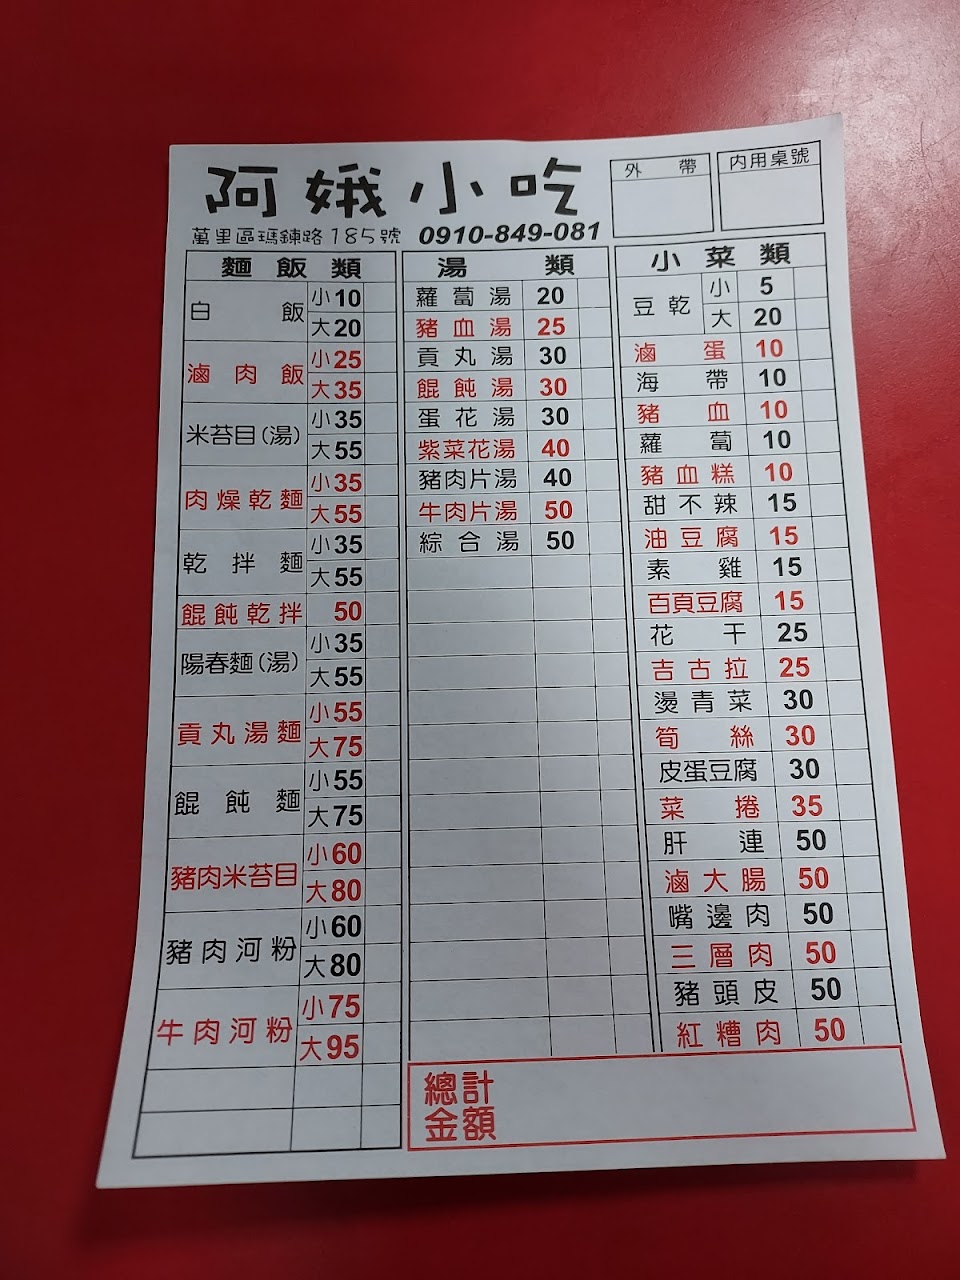 阿娥小吃
萬里區瑪鋉路185號 0910-849-081
外帶
內用桌號
麵飯類
白飯 小10
大20
滷肉飯 小25
大35
米苔目(湯) 小35
大55
肉燥乾麵 小35
大55
乾拌麵 小35
大55
餛飩乾拌 50
陽春麵(湯) 小35
大55
貢丸湯麵 小55
大75
餛飩麵 小55
大75
豬肉米苔目 小60
大80
豬肉河粉 小60
大80
牛肉河粉 小75
大95
湯類
蘿蔔湯 20
豬血湯 25
貢丸湯 30
餛飩湯 30
蛋花湯 30
紫菜花湯 40
豬肉片湯 40
牛肉片湯 50
綜合湯 50
小菜類
豆乾 小 5
大 20
滷蛋 10
海帶 10
豬血 10
蘿蔔 10
豬血糕 10
甜不辣 15
油豆腐 15
素雞 15
百頁豆腐 15
花干 25
吉古拉 25
燙青菜 30
筍絲 30
皮蛋豆腐 30
菜捲 35
肝連 50
滷大腸 50
嘴邊肉 50
三層肉 50
豬頭皮 50
紅糟肉 50
總計
金額